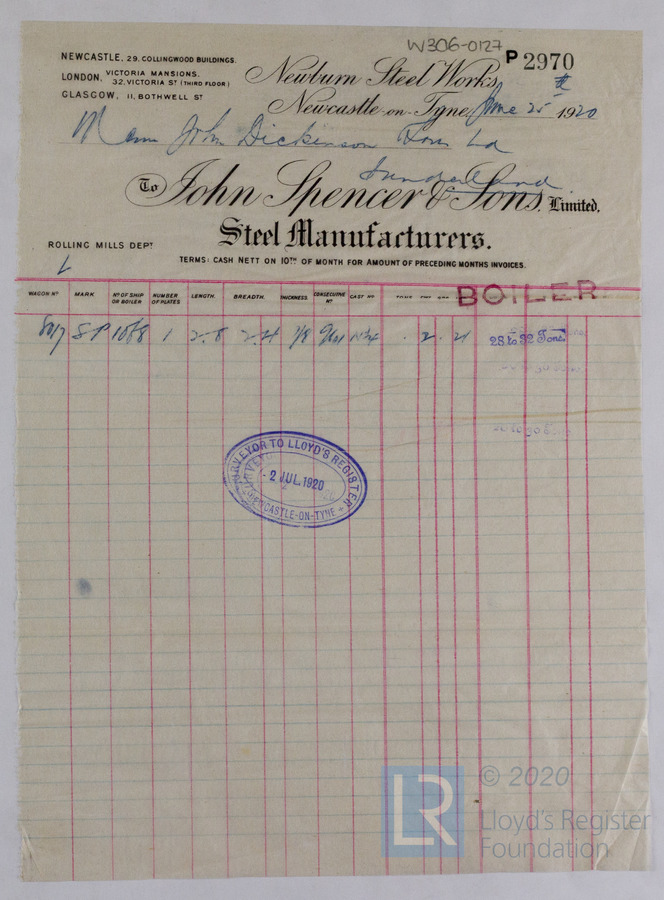 W306-0127
P 2970
NEWCASTLE, 29. COLLINGWOOD BUILDINGS.
LONDON, VICTORIA MANSIONS. 32, VICTORIA ST (THIRD FLOOR)
GLASGOW, 11, BOTHWELL ST
Newburn Steel Works,
Newcastle-on-Tyne, June 25 1920
John Dickinson Sons Ld
Sunderland
To John Spencer & Sons, Limited.
Steel Manufacturers.
ROLLING MILLS DEPT
TERMS: CASH NETT ON 10TH OF MONTH FOR AMOUNT OF PRECEDING MONTHS INVOICES.
BOILER
WAGON No MARK No OF SHIP OR BOILER NUMBER OF PLATES LENGTH. BREADTH. THICKNESS. CONSECUTIVE No CAST No
8017 SP 1068 1 2-8 2-21 7/8 2 21 28 to 32 Tons
SURVEYOR TO LLOYD'S REGISTER
- 2 JUL. 1920
NEWCASTLE-ON-TYNE
LR
© 2020
Lloyd's Register
Foundation